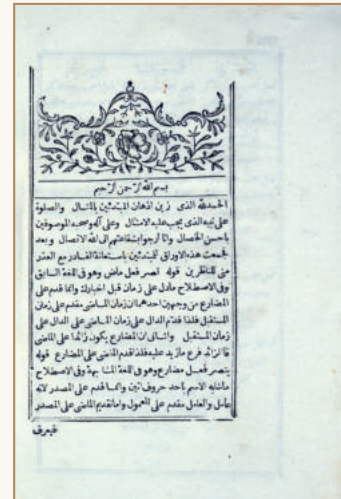 بسم الله الرحمن الرحيم
الحمد لله الذى زين اذهان المبتدئين بالمثال والصلوة
على نبيه الذى يجب عليه الامتثال وعلى آله وصحبه الموصوفين
باحسن الخصال وانما ارجو ابشفاعتهم الى الله الاتصال وبعد
فجمعت هذه الاوراق للمبتدئين باستعانة القادر مع العذر
منى للناظرين قوله نصر فعل ماض وهو فى اللغة السابق
وفى الاصطلاح مادل على زمان قبل اخبارك وانما قدم على
المضارع من وجهين احدهما ان زمان الماضى مقدم على زمان
المستقبل فلذا قدم الدال على زمان الماضى على الدال على
زمان المستقبل والثانى ان المضارع يكون زائدا على الماضى
فالزائد فرع مازيد عليه فلذا قدم الماضى على المضارع قوله
ينصر فعل مضارع وهو فى اللغة المشابهة وفى الاصطلاح
ماشابه الاسم باحد حروف اتين وانما قدم على المصدر لانه
عامل والعامل مقدم على المعمول واما تقديم الماضى على المصدر